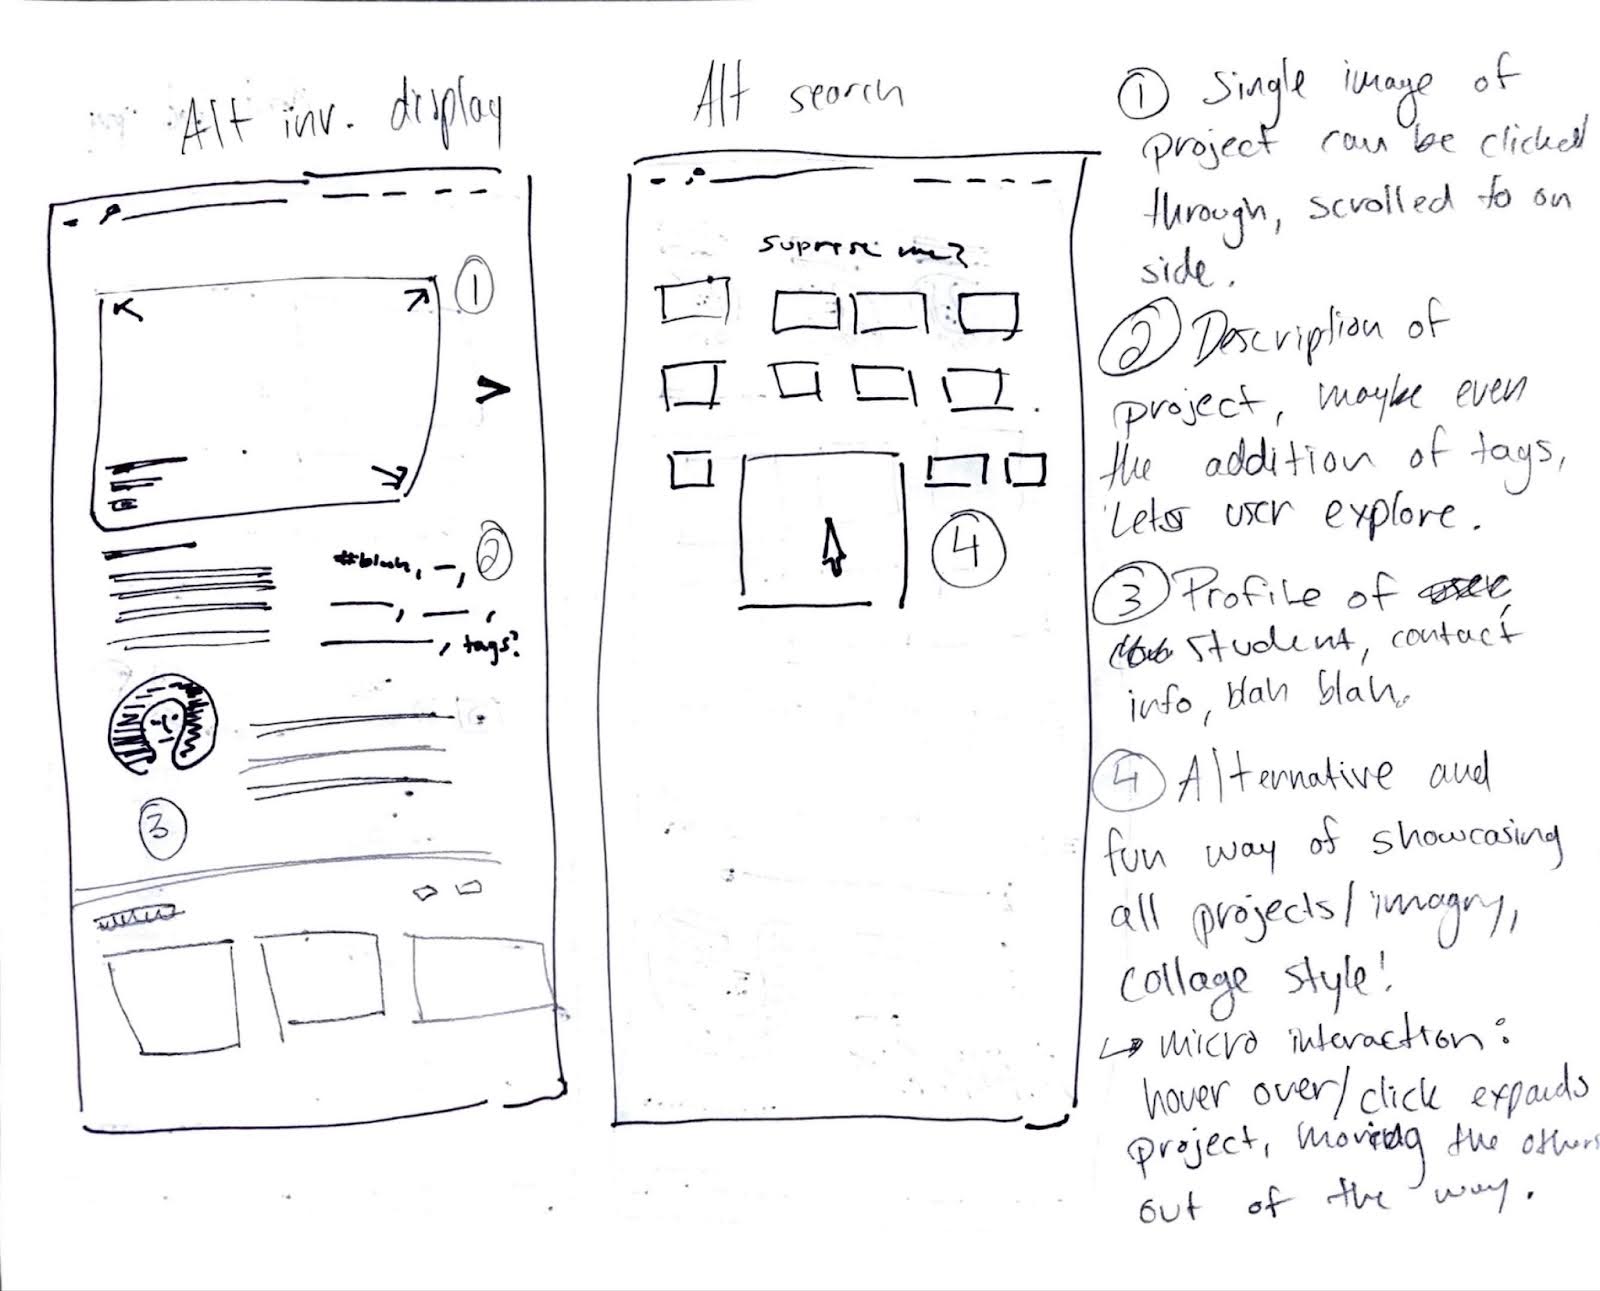 Alt inv. display
1
#blah,
2
tags?
3
Alt search
suprise me?
4
1 Single image of
project can be clicked
through, scrolled to on
side.
2 Description of
project, maybe even
the addition of tags,
Lets user explore.
3 Profile of
student, contact
info, blah blah.
4 Alternative and
fun way of showcasing
all projects/imagry,
collage style!
↳ micro interaction:
hover over/click expands
project, moving the others
out of the way.